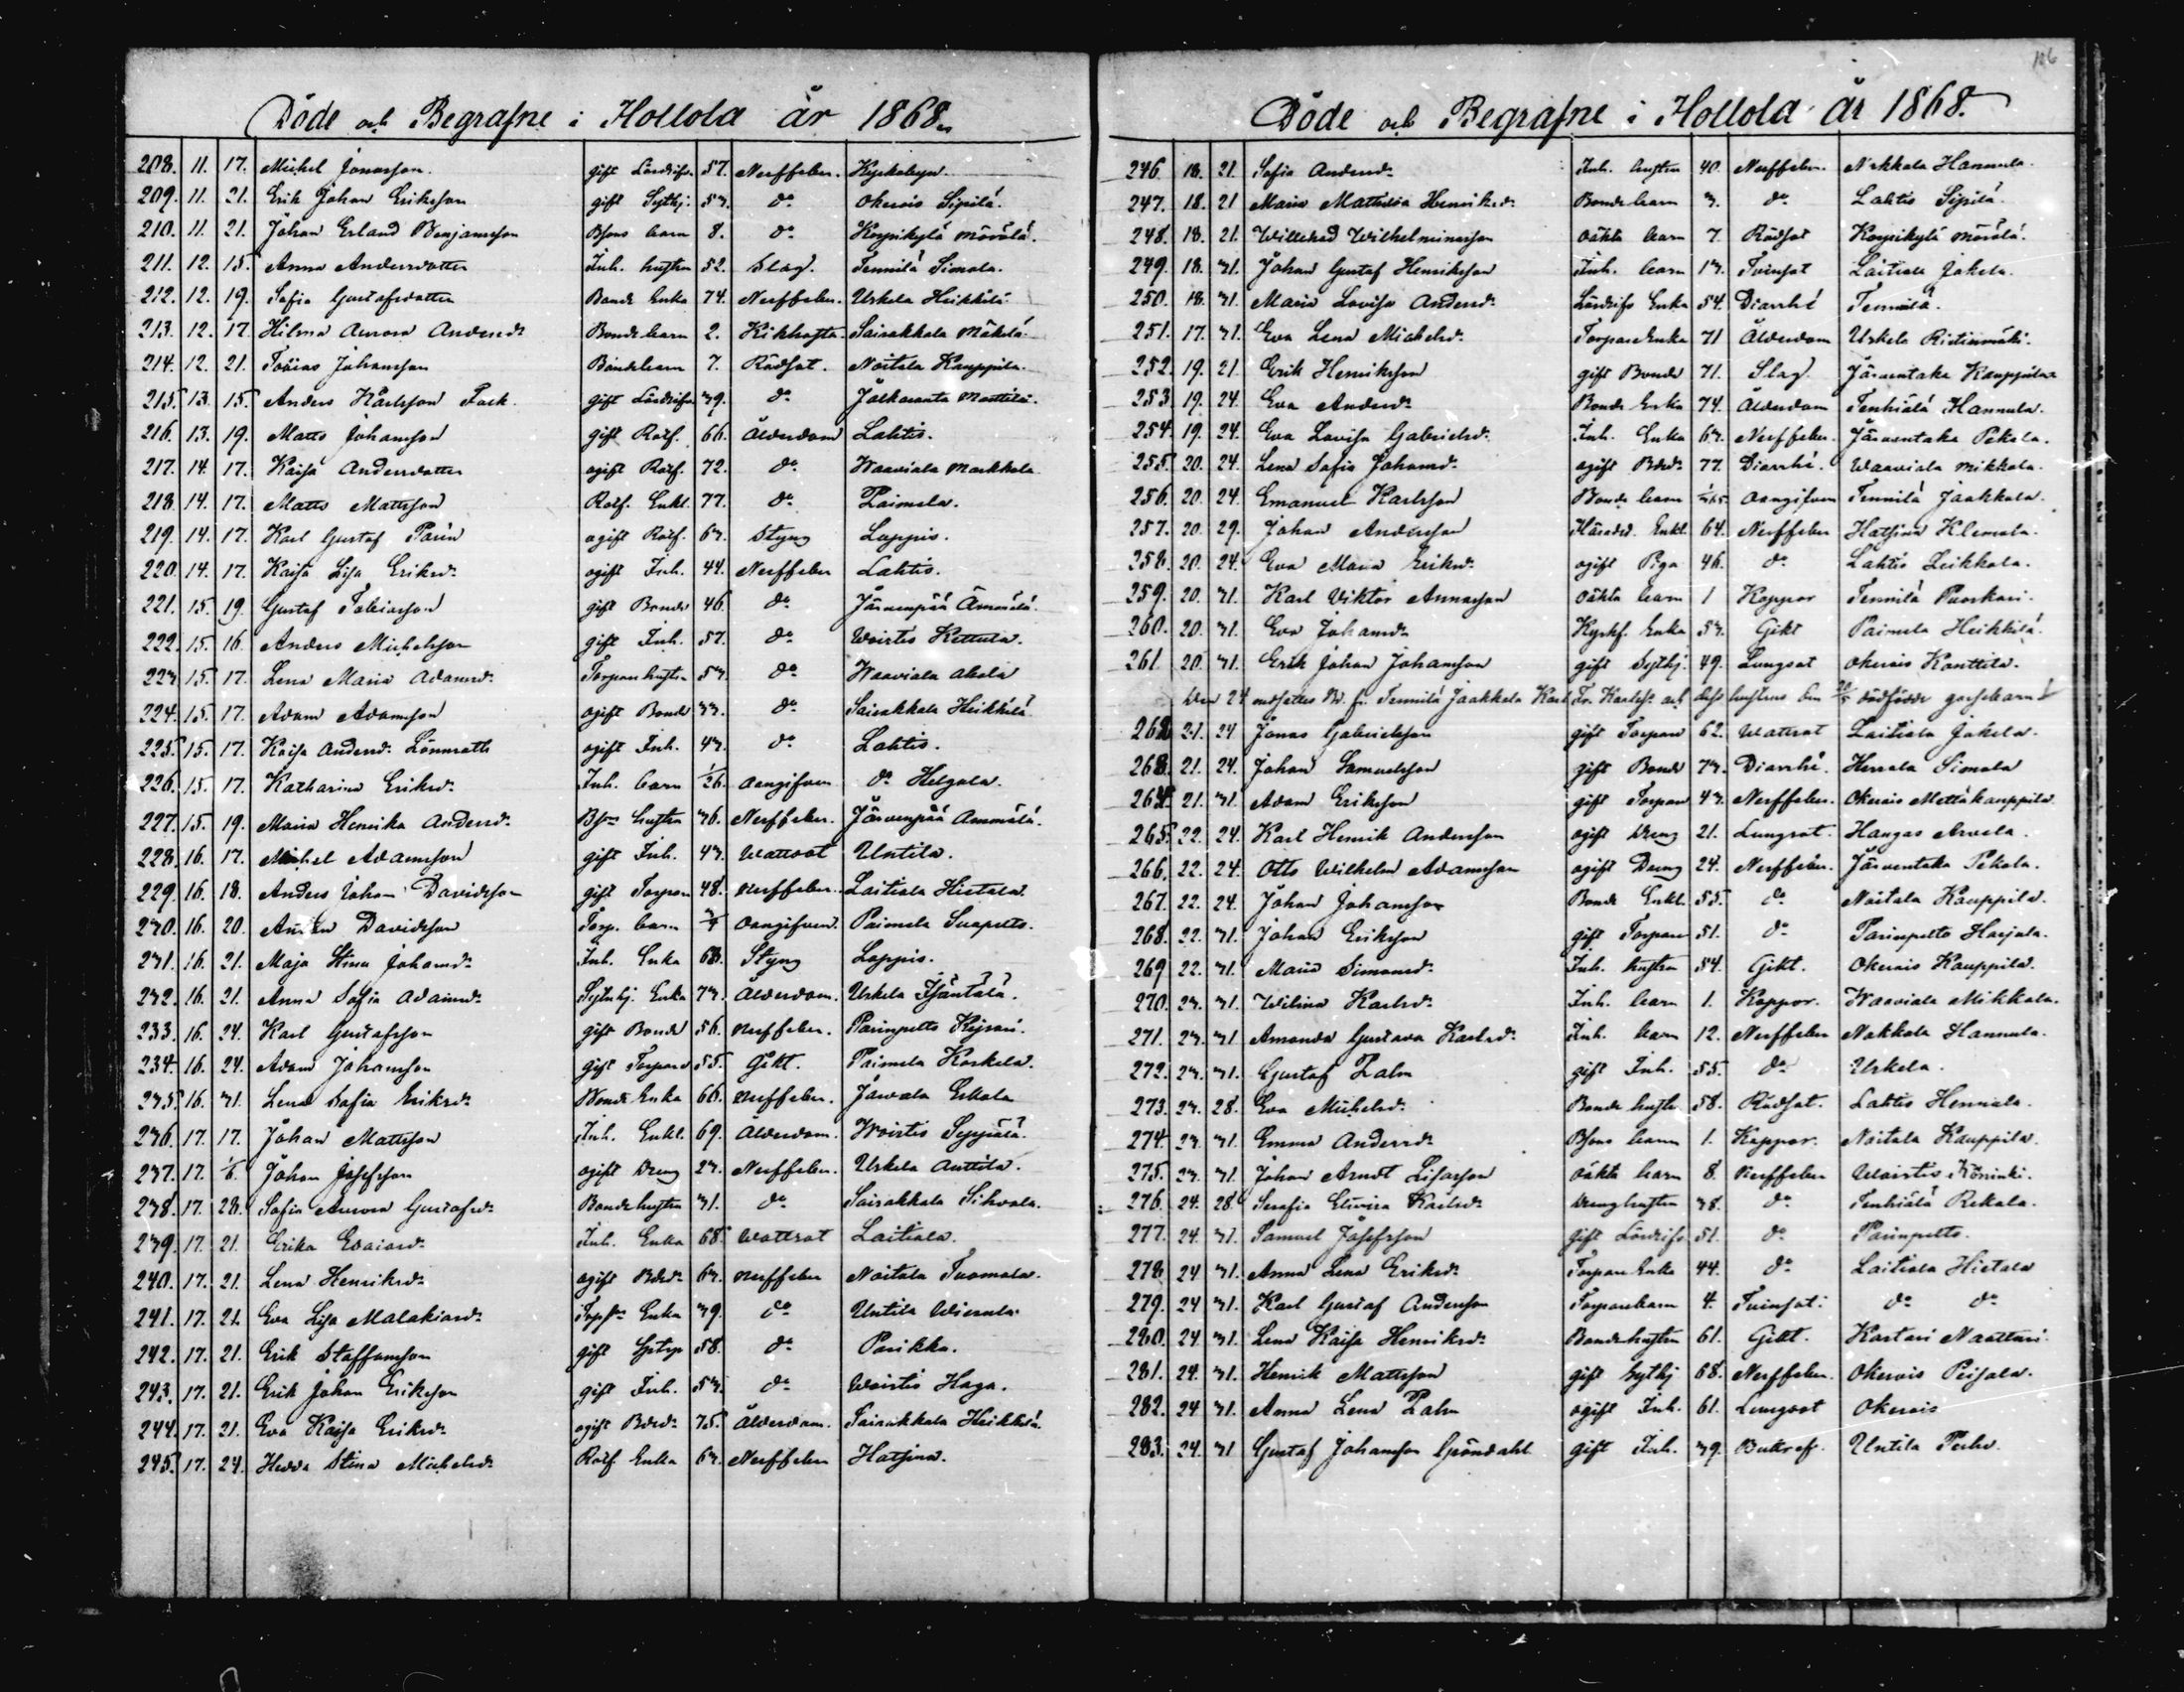 106
Döde och Begrafne i Hollola år 1868.
208. 11. 17. Michel Jonasson. gift Lösdrifv. 57. Nerffeber. Kyrkobyn
209. 11. 21. Erik Johan Eriksson gift Sytkj. 53. do Okerois Sipilä.
210. 11. 21. Johan Erland Benjamsson Bsons barn 8. do Korpikylä Mörölä.
211. 12. 15. Anna Andersdotter Inh. hustru 52. Slag. Tennilä Simola.
212. 12. 19. Sofia Gustafsdotter Bonde Enka 74. Nerffeber. Uskela Heikkilä.
213. 12. 17. Hilma Aurora Andersdr Bonde barn 2. Kikhosta. Sairakkala Mäkelä.
214. 12. 21. Tobias Johansson Bondebarn 7. Rödsot. Noitala Kauppila.
215. 13. 15. Anders Karlsson Fack. gift Lösdrifv. 39. do Jalkaranta Monttila.
216. 13. 19. Matts Johansson gift Rotf. 66. Ålderdom Lahtis.
217. 14. 17. Kaisa Andersdotter ogift Rotf. 72. do Waaviala Markkola
218. 14. 17. Matts Mattsson Rotf. Enkl. 77. do Paimela.
219. 14. 17. Karl Gustaf Parin ogift Rotf. 63. Styng Lappis.
220. 14. 17. Kaisa Lisa Eriksdr ogift Inh. 44. Nerffeber Lahtis.
221. 15. 19. Gustaf Tobiasson gift Bonde 46. do Järvenpää Ämmälä.
222. 15. 16. Anders Michelsson gift Inh. 57. do Woistis Kettula.
223. 15. 17. Lena Maria Adamsdr Torpare hustru 53. do Waaviala Akola
224. 15. 17. Adam Adamsson ogift Bonde 33. do Sairakkala Heikkilä
225. 15. 17. Kaisa Andersdr Lönnroth ogift Inh. 43. do Lahtis.
226. 15. 17. Katharina Eriksdr Inh. barn 1/26. oangifven do Helgala.
227. 15. 19. Maria Henrika Andersdr Bsons hustru 36. Nerffeber. Järvenpää Ämmälä.
228. 16. 17. Michel Adamsson gift Inh. 43. Wattsot Untila.
229. 16. 18. Anders Johan Davidsson gift Torpare 48. Nerffeber. Laitiala Hietala.
230. 16. 20. Davidsson Torp. barn oangifven. Paimela Suapelto.
231. 16. 21. Maja Stina Johansdr Inh. Enka 68. Styng Lappis.
232. 16. 21. Anna Sofia Adamsdr Sytnkj. Enka 73. Ålderdom. Uskela Isäntälä.
233. 16. 24. Karl Gustafsson gift Bonde 56. Nerffeber. Parinpelto
234. 16. 24. Adam Johansson gift Torpare 55. Gikt. Paimela Korkela.
235. 16. 31. Lena Sofia Eriksdr Bonde Enka 60. Nerffeber. Jarvala Erkola
236. 17. 17. Johan Mattsson Inh. Enkl. 69. Ålderdom. Woistis Seppälä.
237. 17. 1/6 Johan Josefsson ogift Dreng 23. Nerffeber. Uskela Anttila.
238. 17. 28. Sofia Aurora Gustafsdr Bonde hustru 31. do Sairakkala Sihvola.
239. 17. 21. Erika Esaiasdr Inh. Enka 68. Wattsot Laitiala.
240. 17. 21. Lena Henriksdr ogift Bdrdr 63. Nerffeber Noitala Tuomala.
241. 17. 21. Eva Lisa Malakiasdr Enka 39. do Untila Wierula.
242. 17. 21. Erik Staffansson gift 58. do Parikka.
243. 17. 21. Erik Johan Eriksson gift Inh. 53. do Woistis Haga.
244. 17. 21. Eva Kaisa Eriksdr ogift Bdrdr 75. Ålderdom. Sairakkala Heikkilä.
245. 17. 24. Hedda Stina Michelsdr Rotf Enka 63. Nerffeber Hatsina.
Döde och Begrafne i Hollola år 1868.
246. 18. 21. Sofia Andersdr Inh. hustru 40. Nerffeber. Nokkola Hannula.
247. 18. 21 Maria Mathilda Henriksdr Bonde barn 3. do Lahtis Sipilä.
248. 18. 21. Willehad Wilhelminasson oäkta barn 7. Rödsot Korpikylä Mörölä.
249. 18. 31. Johan Gustaf Henriksson Inh. barn 13. Tvinsot Laitiala Jakola.
250. 18. 31. Maria Lovisa Andersdr Lösdrifv Enka 54. Diarrhé Tennilä.
251. 17. 31. Eva Lena Michelsdr Torpare Enka 71 Ålderdom Uskela Ristinmäki.
252. 19. 21. Erik Henriksson gift Bonde 71. Slag. Järventaka Kauppila.
253. 19. 24. Eva Andersdr Bonde Enka 74. Ålderdom Tenhiälä Hannula.
254. 19. 24. Eva Lovisa Gabrielsdr Inh. Enka 63. Nerffeber. Järventaka Pekola.
255. 20. 24. Lena Sofia Johansdr ogift Bdrdr 77. Diarrhé. Waaviala Mikkola.
256. 20. 24. Emanuel Karlsson Bonde barn oangifven Tennilä Jaakkola.
257. 20. 29. Johan Andersson Häradsd. Enkl. 64. Nerffeber Hatsina Klemola.
258. 20. 24. Eva Maria Eriksdr ogift Piga 46. do Lahtis Leikkola.
259. 20. 31. Karl Viktor Annasson oäkta barn 1 Koppor Tennilä Puoskari.
260. 20. 31. Eva Johansdr Kyrkf. Enka 53. Gikt Paimela Heikkilä.
261. 20. 31. Erik Johan Johansson gift Sytkj. 49. Lungsot Okerois Konttila.
Den 24 nedsattes Bd. fr. Tennilä Jaakkola Karl Fr. Karlss. och dess hustrus den dödfödde gossebarn
262. 21. 24 Jonas Gabrielsson gift Torpare 62. Wattsot Laitiala Jakola.
263. 21. 24. Johan Samuelsson gift Bonde 73. Diarrhé. Herrala Simola
264. 21. 31. Adam Eriksson gift Torpare 43. Nerffeber. Okerois Mettäkauppila.
265. 22. 24. Karl Henrik Andersson ogift Dreng 21. Lungsot. Hangas Arvela.
266. 22. 24. Otto Wilhelm Adamsson ogift Dreng 24. Nerffeber. Järventaka Pekola.
267. 22. 24. Johan Johansson Bonde Enkl. 55. do Noitala Kauppila.
268. 22. 31. Johan Eriksson gift Torpare 51. do Parinpelto Harjula.
269. 22. 31. Maria Simonsdr Inh. hustru 54. Gikt. Okerois Kauppila.
270. 23. 31. Wilina Karlsdr Inh. barn 1. Koppor. Waaviala Mikkola.
271. 23. 31. Amanda Gustava Karlsdr Inh. barn 12. Nerffeber Nokkola Hannula.
272. 23. 31. Gustaf Palm gift Inh. 55. do Uskela.
273. 23. 28. Eva Michelsdr Bonde hustru 58. Rödsot. Lahtis Hennala.
274. 23. 31. Emma Andersdr Bsons barn 1. Koppor. Noitala Kauppila.
275. 23. 31. Johan Arndt Lisasson oäkta barn 8. Nerffeber Woistis Könönki.
276. 24. 28. Serafia Elwira Karlsdr Dreng hustru 38. do Tenhiälä Rekola.
277. 24. 31. Samuel Josefsson gift Lösdrifv 51. do Parinpelto.
278. 24 31. Anna Lena Eriksdr Torpare Enka 44. do Laitiala Hietala
279. 24 31. Karl Gustaf Andersson Torparebarn 4. Tvinsot. do do
280. 24 31. Lena Kaisa Henriksdr Bonde hustru 61. Gikt. Kastari Naattari.
281. 24. 31. Henrik Mattsson gift Sytkj 68. Nerffeber. Okerois Peisala.
282. 24 31. Anna Lena Palm ogift Inh. 61. Lungsot Okerois
283. 24. 31 Gustaf Johansson Gröndahl gift Inh. 39. Bukref. Untila